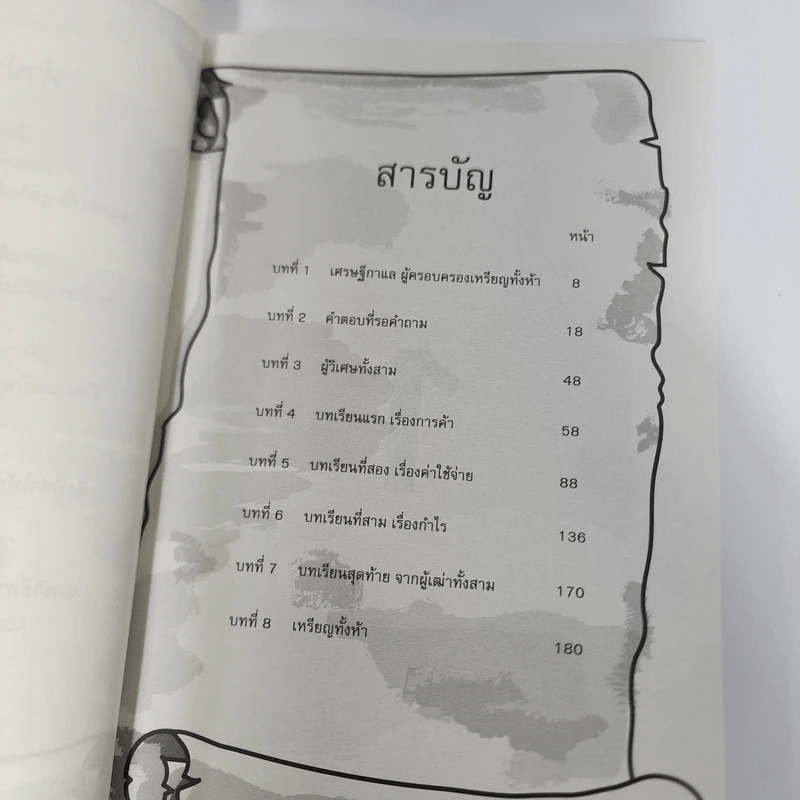 สารบัญ
หน้า
บทที่ 1 เศรษฐีกาแล ผู้ครอบครองเหรียญทั้งห้า 8
บทที่ 2 คำตอบที่รอคำถาม 18
บทที่ 3 ผู้วิเศษทั้งสาม 48
บทที่ 4 บทเรียนแรก เรื่องการค้า 58
บทที่ 5 บทเรียนที่สอง เรื่องค่าใช้จ่าย 88
บทที่ 6 บทเรียนที่สาม เรื่องกำไร 136
บทที่ 7 บทเรียนสุดท้าย จากผู้เฒ่าทั้งสาม 170
บทที่ 8 เหรียญทั้งห้า 180